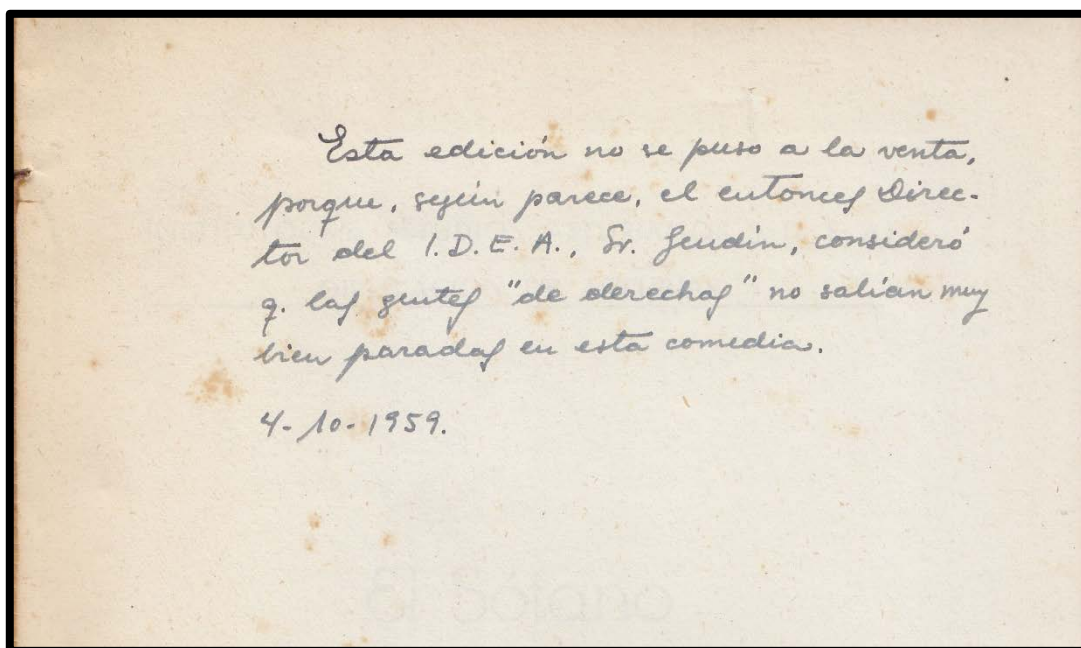 Esta edición no se puso a la venta,
porque, según parece, el entonces Direc-
tor del I.D.E.A., Sr. Gendín, consideró
q. las gentes "de derechas" no salían muy
bien paradas en esta comedia.
4-10-1959.
El Sótano